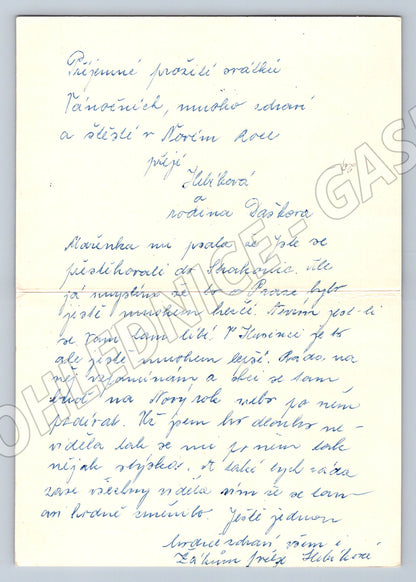 Příjemné prožití svátků
Vánočních, mnoho zdraví
a štěstí v Novém Roce
přejí
Hebíková
a
rodina Daškova
Mařenka mi psala že jste se
přestěhovali do Strakonic. Ale
já myslím že to v Praze bylo
ještě mnohem lepší. Nevím jest-li
se Vám tam líbí. V Husinci je to
ale ještě mnohem lepší. Ráda na
něj vzpomínám a chci se tam
na Nový rok nebo po něm
podívat. Už jsem ho dlouho ne-
viděla tak se mi po něm tak
nějak stýská. A také bych ráda
zase všechny viděla vím že se tam
asi hodně změnilo. Ještě jednou
hodně zdraví všem i
přeje Hebíková
POHLEDNICE - GAS